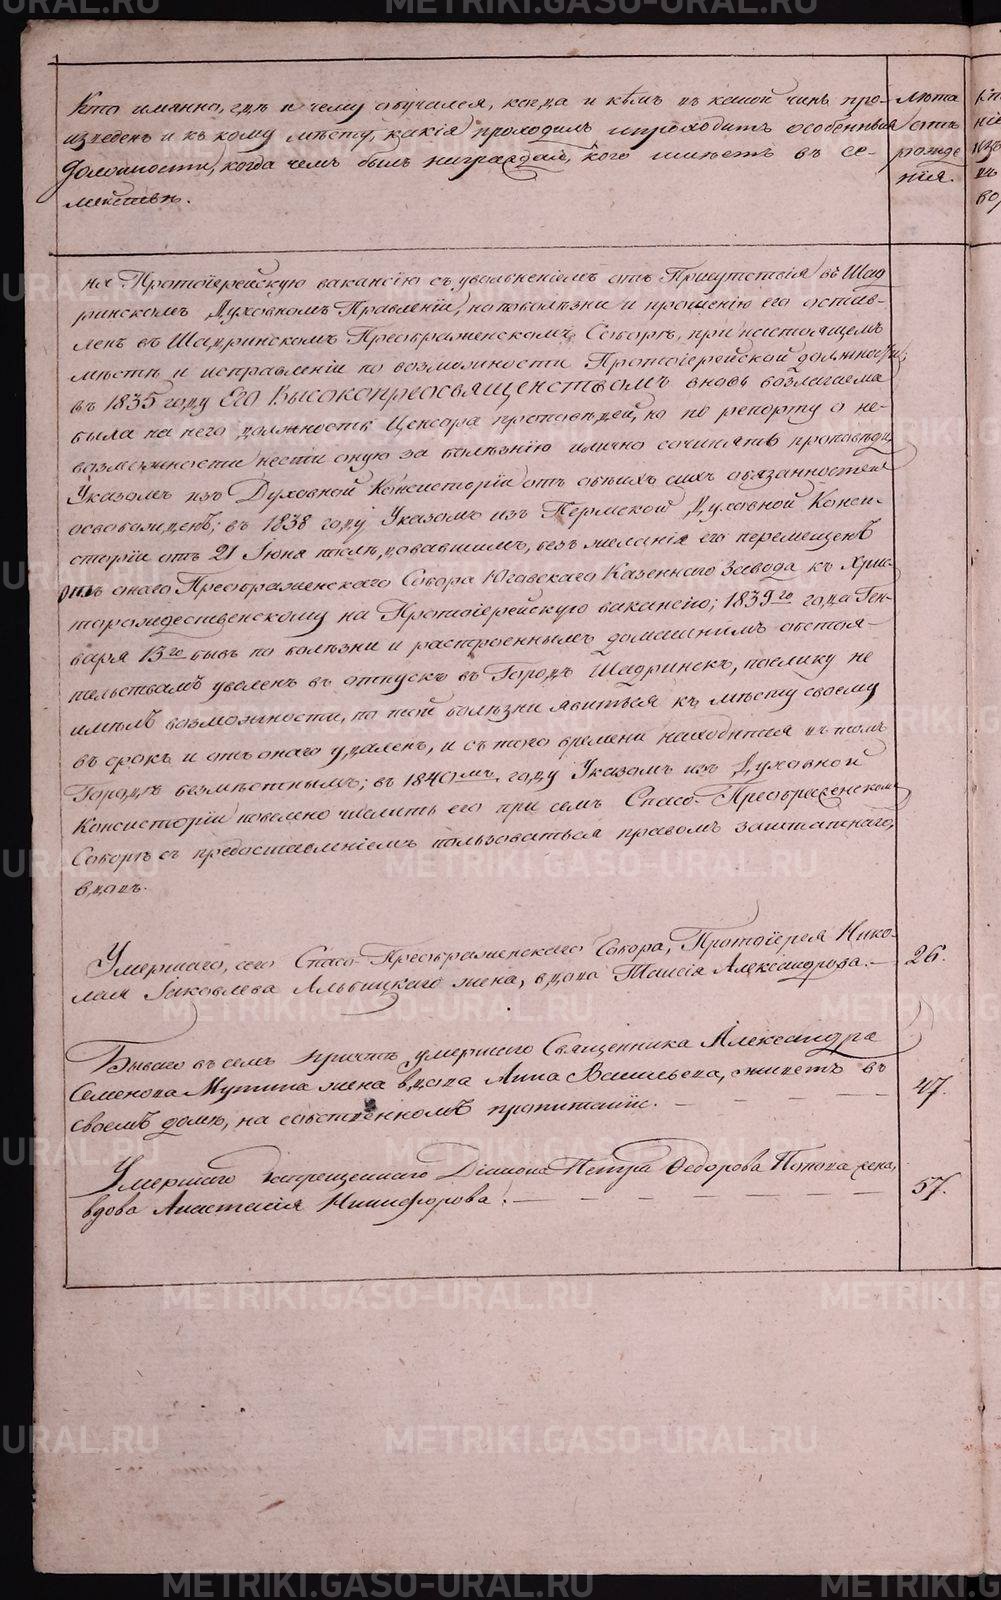 Кто имянно, гдѣ и чему обучался, когда и кѣмъ въ какой чинъ про-
изведенъ и къ кому мѣсту, какія проходилъ и проходитъ особенныя
должности, когда чемъ былъ награжденъ, кого имѣетъ въ се-
мействѣ.
лѣта
отъ
рожде
нія.
на Протоіерейскую вакансію съ увольненіемъ отъ Присутствія въ Шад
ринскомъ Духовномъ Правленіи, но по болѣзни и прошенію его остав-
ленъ въ Шадринскомъ Преображенскомъ Соборѣ, при настоящемъ
мѣстѣ и исправленіи по возможности Протоіерейской должности;
въ 1835 году Его Высокопреосвященствомъ вновь возлагаема
была на него должность Цензора проповѣдей, но по репорту о не-
возможности нести оную за болѣзнію и лично сочинять проповѣди,
Указомъ изъ Духовной Консисторіи отъ обѣихъ сихъ обязанностей
освобожденъ; въ 1838 году Указомъ изъ Пермской Духовной Конси-
сторіи отъ 21 Іюня послѣдовавшимъ, безъ желанія его перемещенъ
отъ онаго Преображенскаго Собора Юговскаго Казеннаго Завода къ Хрис-
торождественскому на Протоіерейскую вакансію; 1839го года Ген-
варя 13го бывъ по болѣзни и растроеннымъ домашнимъ обстоя-
тельствамъ уволенъ въ отпускъ въ Городъ Шадринскъ, поелику не
имѣлъ возможности, по той болѣзни явиться къ мѣсту своему
въ срокъ и отъ онаго удаленъ, и съ того времени находится въ томъ
Городѣ безмѣстнымъ; въ 1840мъ году Указомъ изъ Духовной
Консисторіи повелено числить его при семъ Спасо-Преображенскомъ
Соборѣ съ предоставленіемъ пользоваться правомъ заштатнаго,
вдовъ.
Умершаго, сего Спасо-Преображенскаго Собора, Протоіерея Нико-
лая Іаковлева Альбицкаго жена, вдова Таисія Александрова. 26.
Бываго въ семъ причтѣ умершаго Священника Александра
Семенова Мутина жена вдова Анна Васильева, живетъ въ
своемъ домѣ, на собственномъ пропитаніи. 47.
Умершаго запрещеннаго Діакона Петра Ѳедорова Попова жена,
вдова Анастасія Никифорова. 57.
METRIKI.GASO-URAL.RU